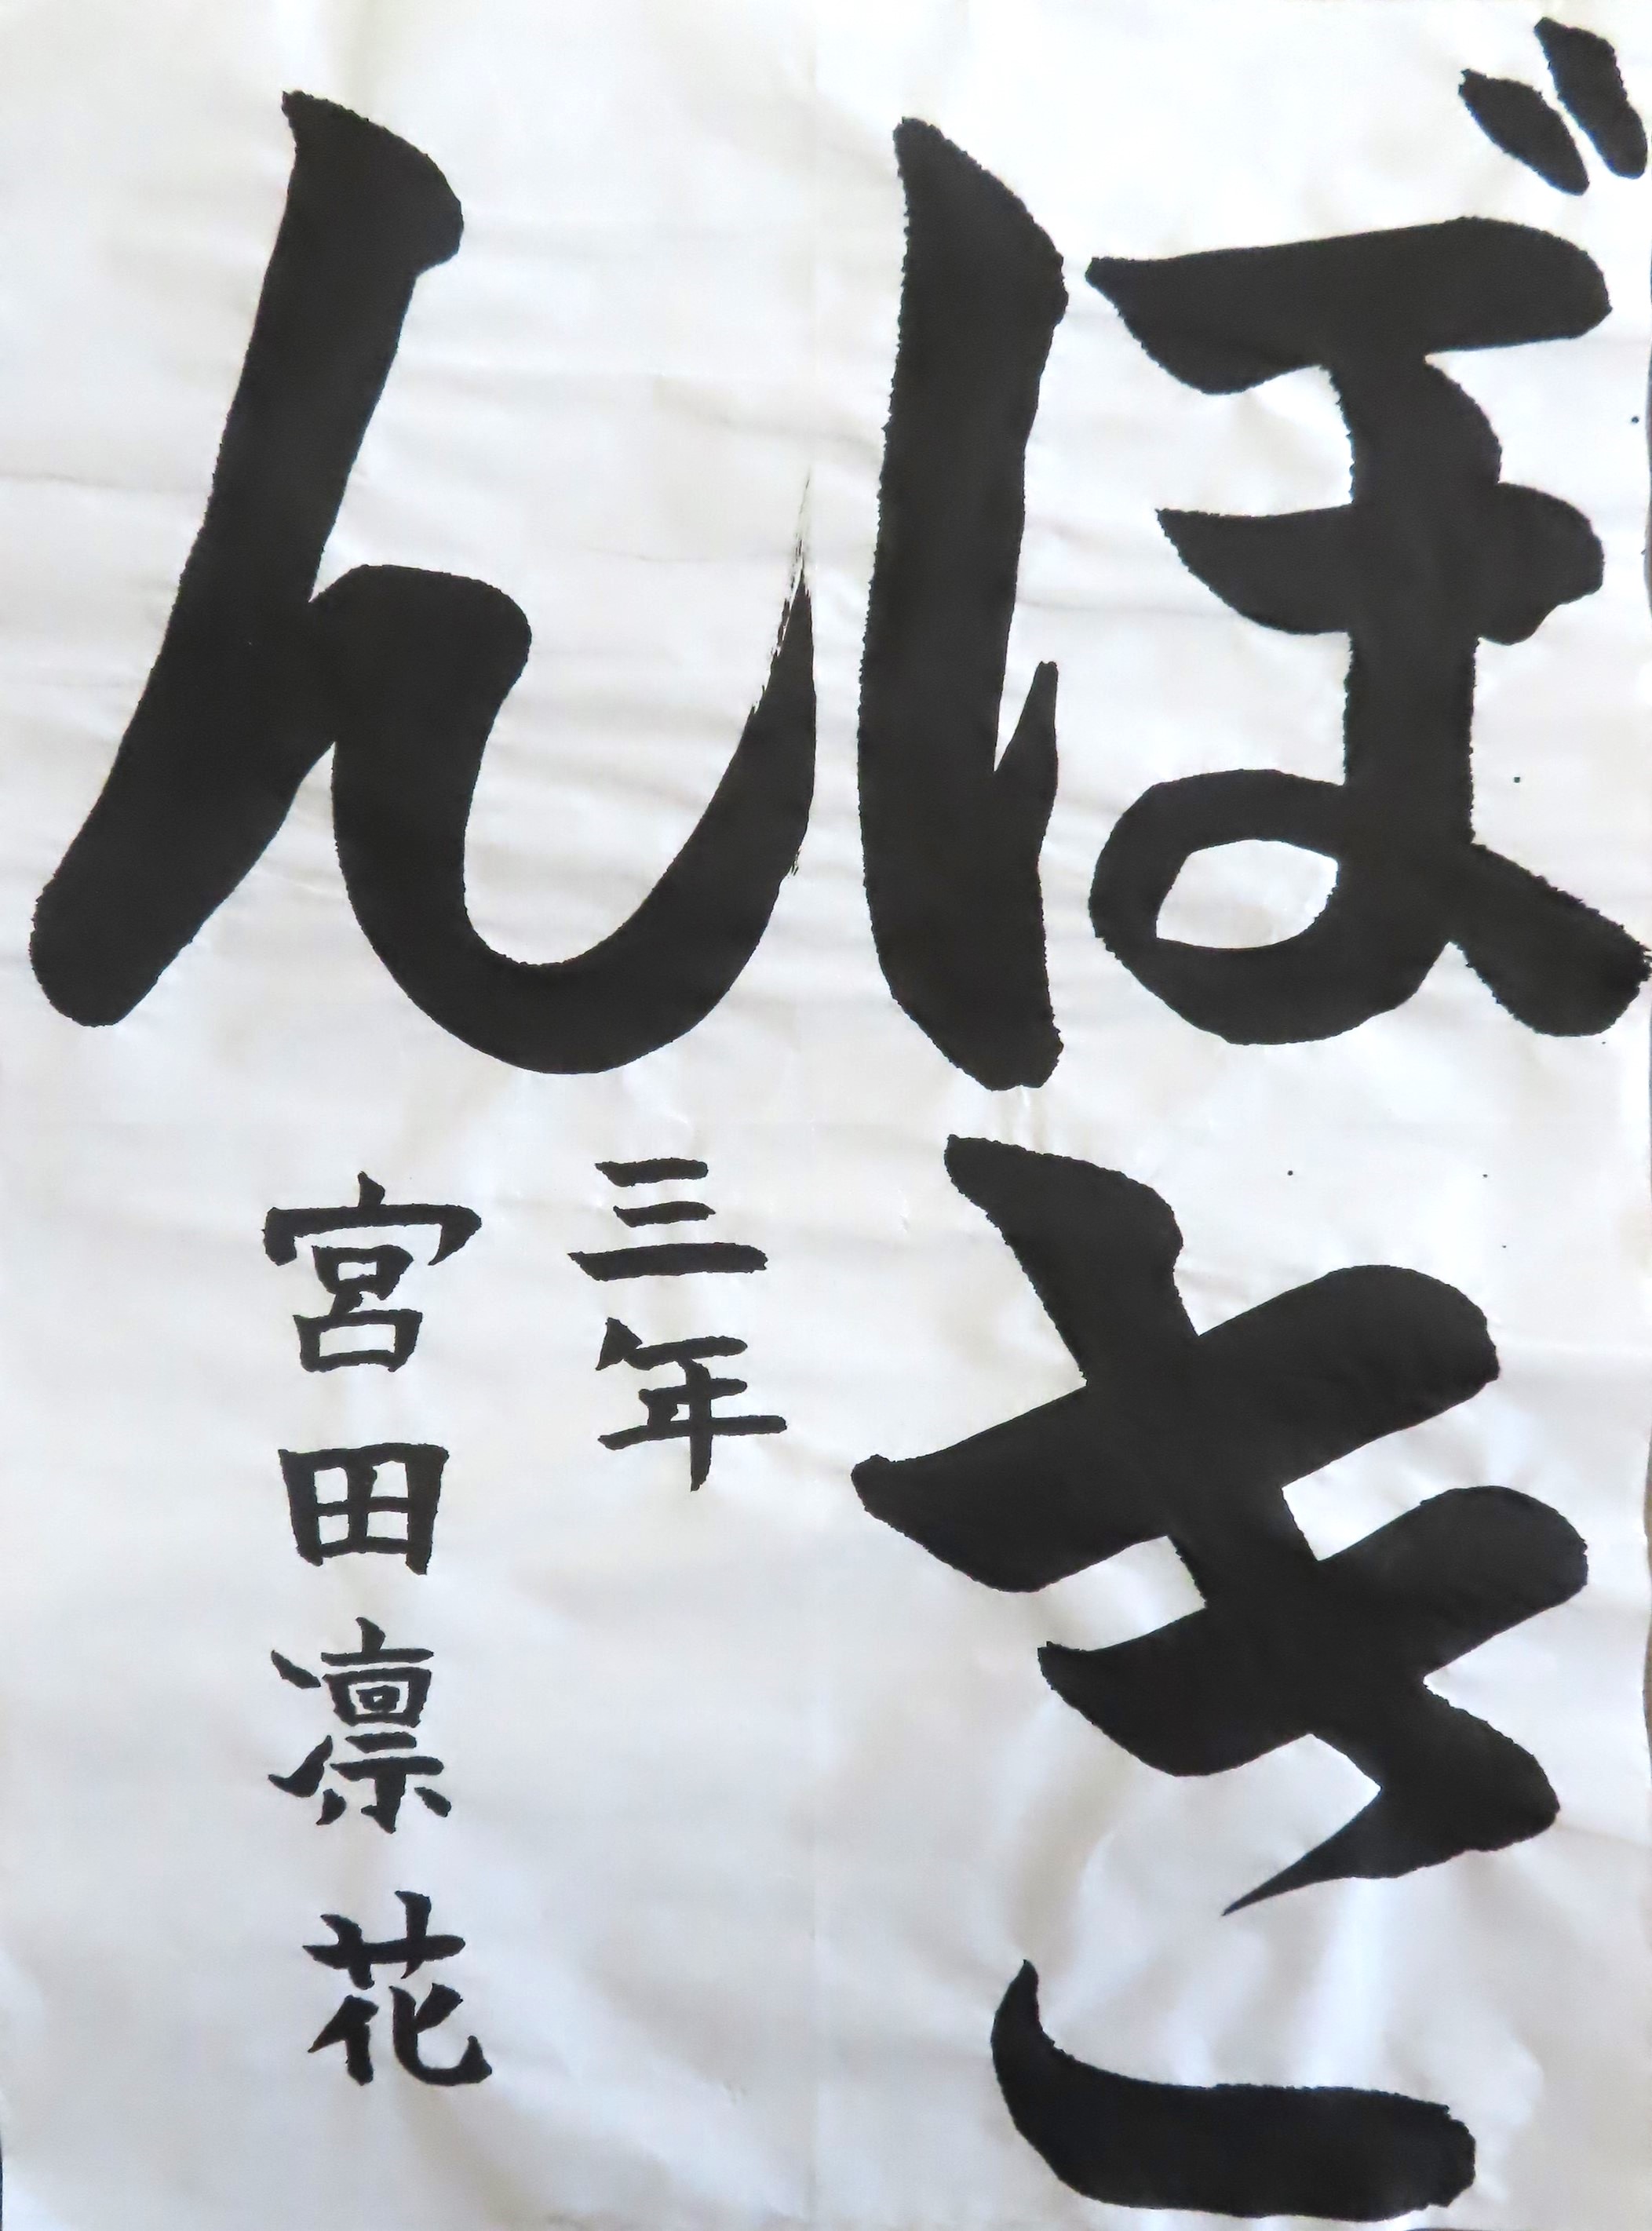 ぼきん
三年
宮田凛花